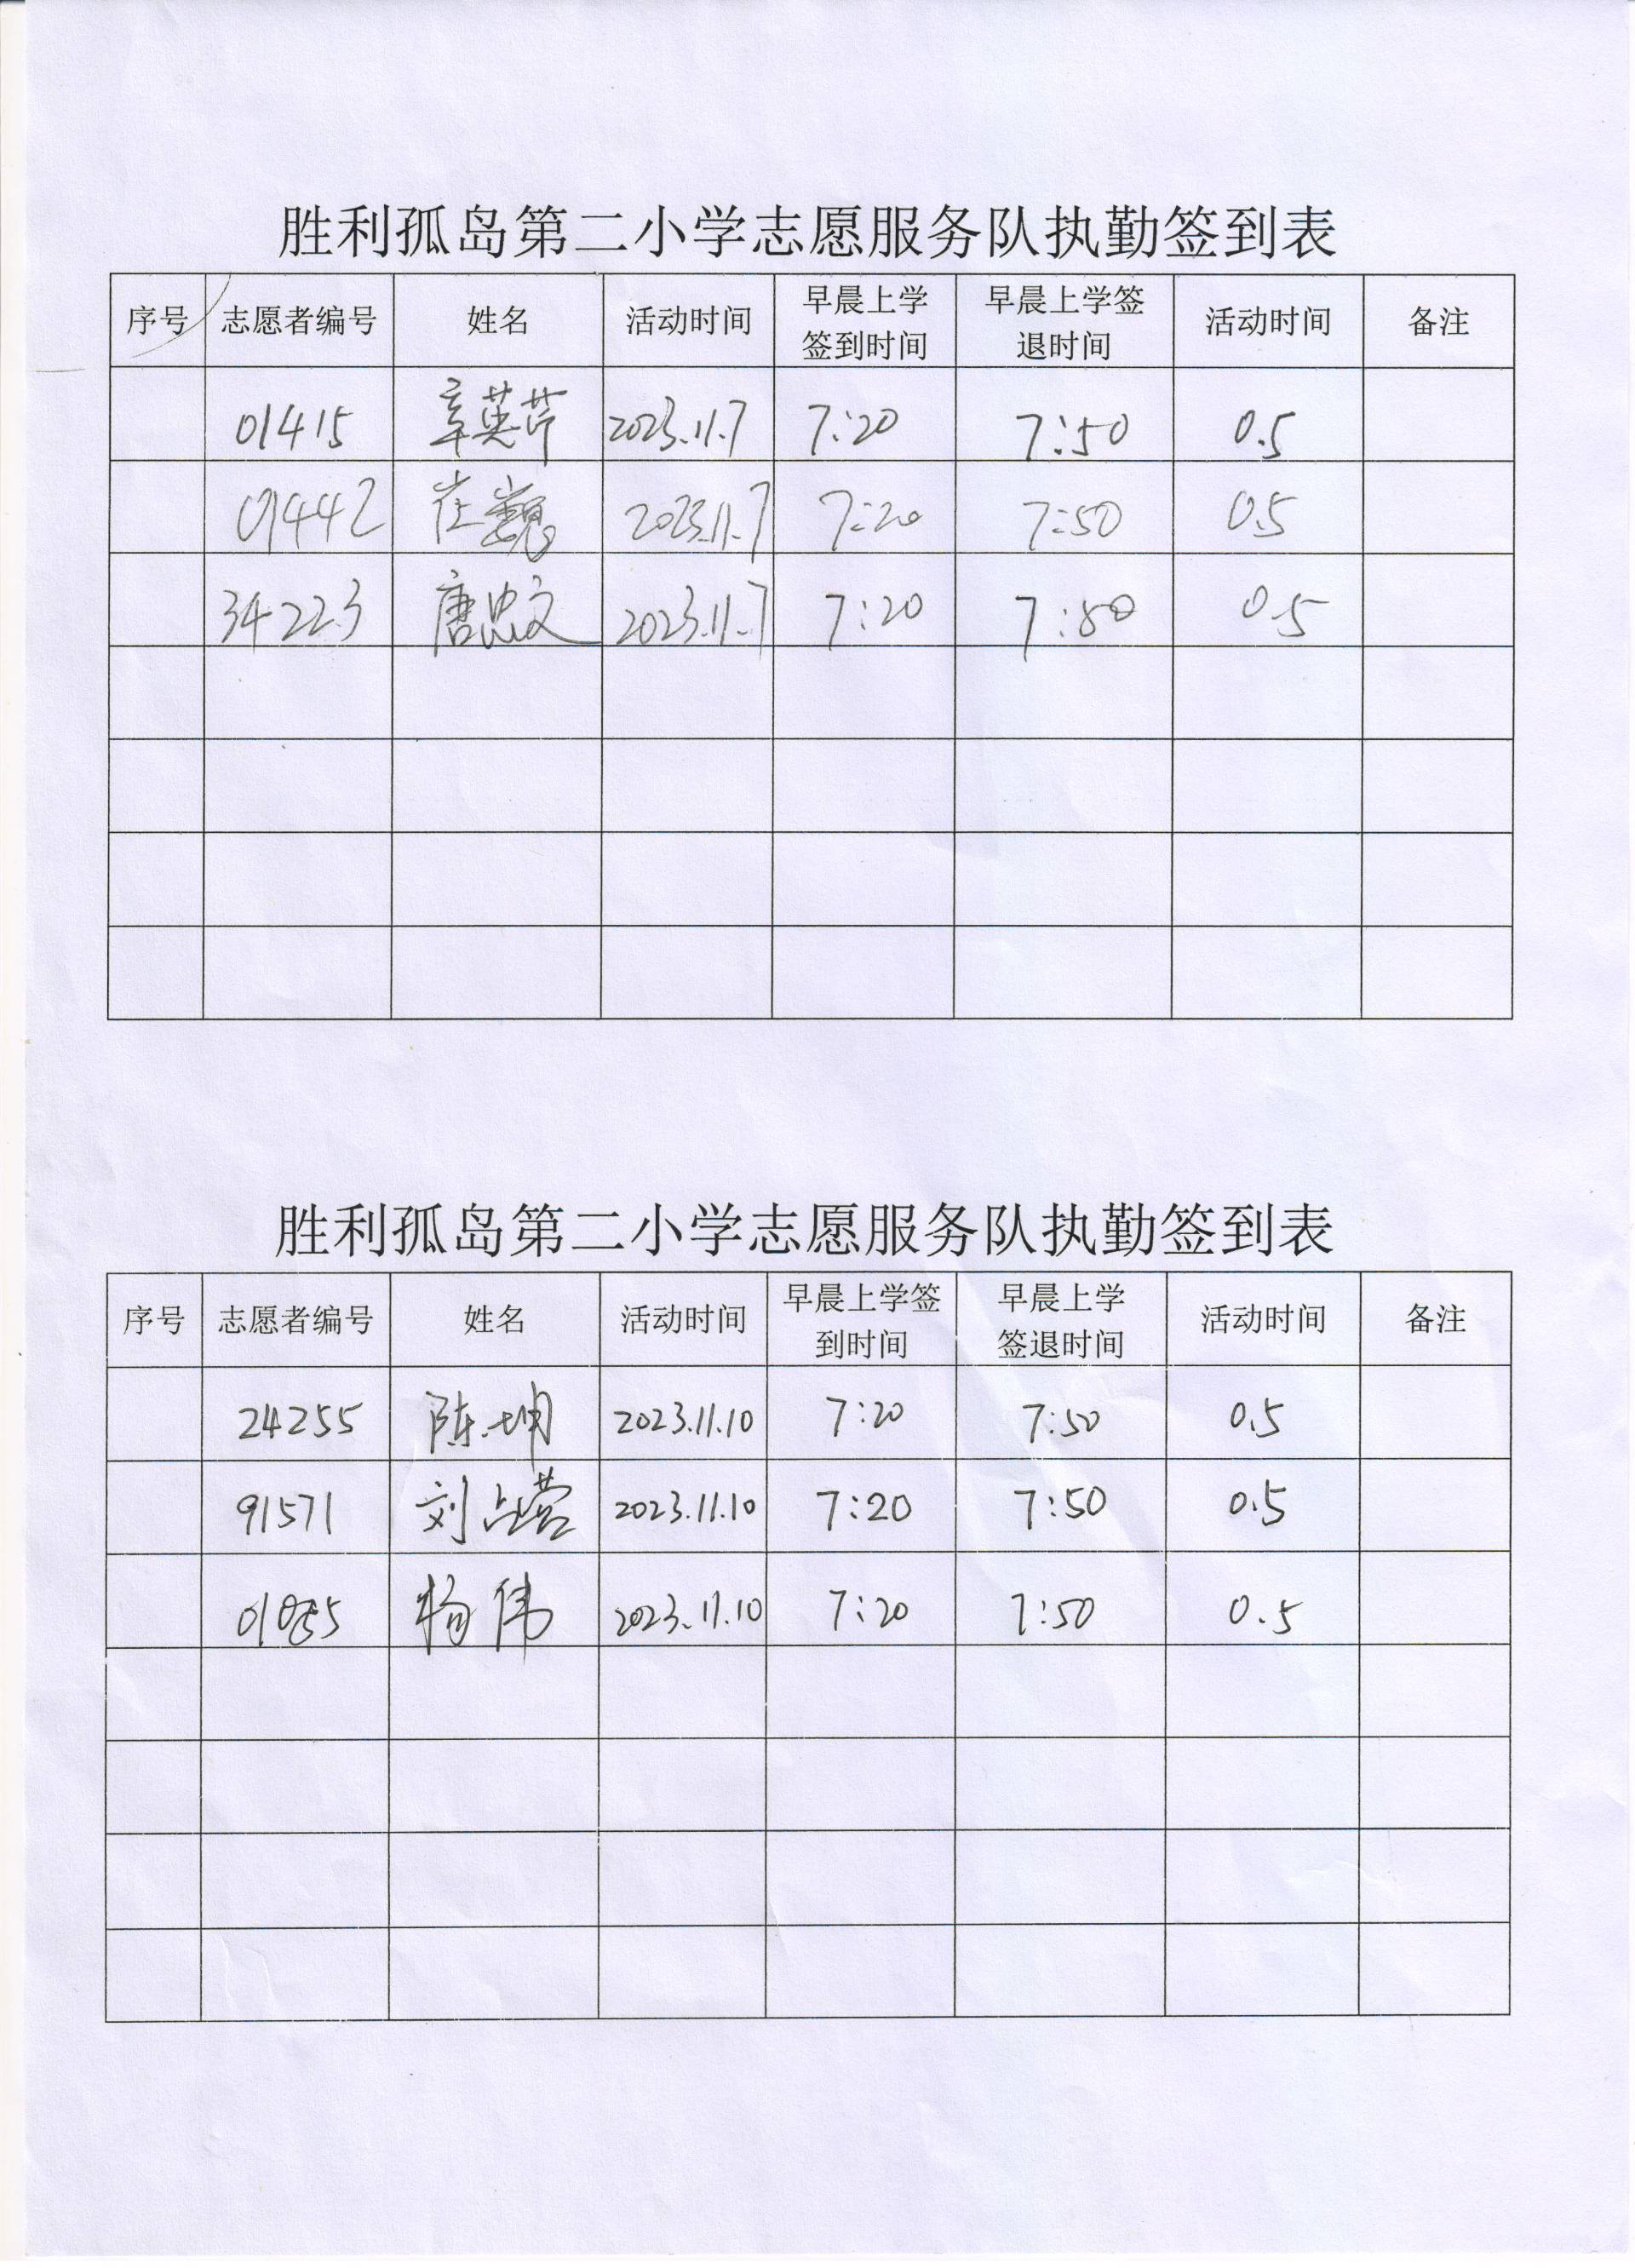 胜利孤岛第二小学志愿服务队执勤签到表
序号 志愿者编号 姓名 活动时间 早晨上学签到时间 早晨上学签退时间 活动时间 备注
01415 辛英芹 2023.11.7 7:20 7:50 0.5
01442 崔巍 2023.11.7 7:20 7:50 0.5
34223 唐忠文 2023.11.7 7:20 7:50 0.5
胜利孤岛第二小学志愿服务队执勤签到表
序号 志愿者编号 姓名 活动时间 早晨上学签到时间 早晨上学签退时间 活动时间 备注
24255 陈坤 2023.11.10 7:20 7:50 0.5
91571 刘占营 2023.11.10 7:20 7:50 0.5
杨伟 2023.11.10 7:20 7:50 0.5